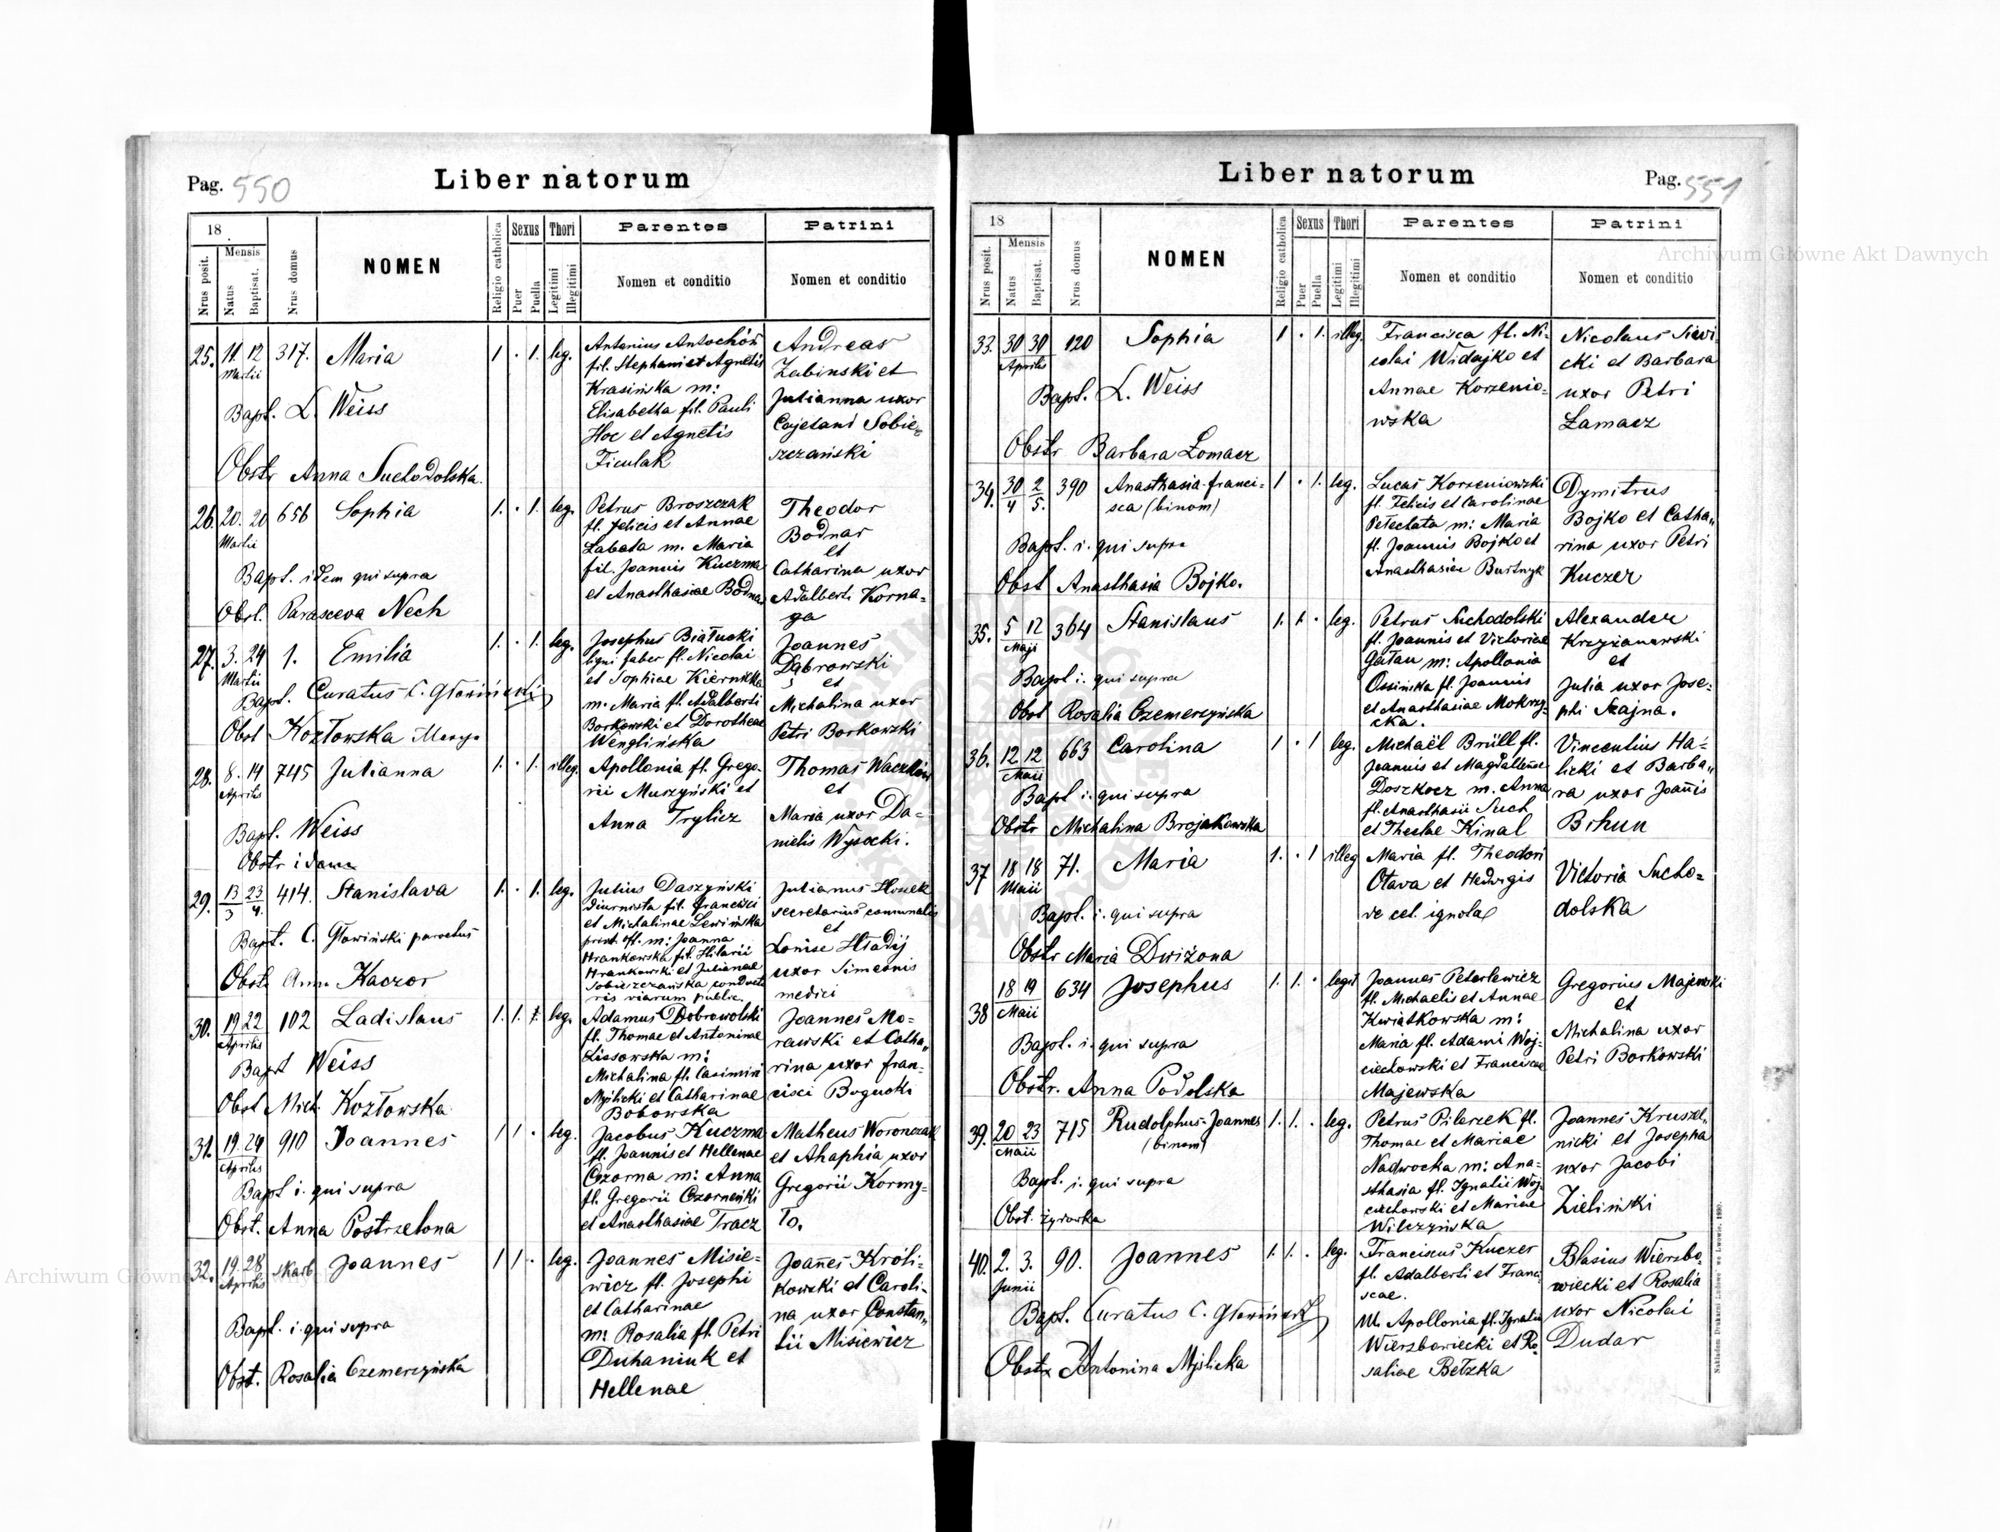 Pag. 550
Liber natorum
18
Nrus posit.
Mensis
Natus
Baptisat.
Nrus domus
NOMEN
Religio catholica
Sexus
Puer
Puella
Thori
Legitimi
Illegitimi
Parentes
Nomen et conditio
Patrini
Nomen et conditio
25. 11 12 317. Maria 1 . 1. leg.
Martii
Bapt. L. Weiss
Obstr Anna Suchodolska.
Antonius Antochów
fil. Stephani et Agnetis
Krasińska m:
Elisabetha fil. Pauli
Hoc et Agnetis
Ficulak
Andreas
Zabinski et
Julianna uxor
Cajetani Sobie=
szczański
26. 20. 20 656 Sophia 1. . 1. leg.
Martii
Bapt. idem qui supra
Obst. Parasceva Nech
Petrus Broszczak
fl. Felicis et Annae
Labata m. Maria
fil. Joannis Kuczma
et Anasthasiae Bodnar
Theodor
Bodnar
et
Catharina uxor
Adalberti Korna=
ga
27. 3. 24 1. Emilia 1. . 1. leg.
Martii
Bapt. Curatus C. Głowiński
Obst Kozłowska
Josephus Białucki
ligni faber fl. Nicolai
et Sophiae
m. Maria fl. Adalberti
Borkowski et Dorotheae
Wenglińska
Joannes
Dąbrowski
et
Michalina uxor
Petri Borkowski
28. 8. 14 745 Julianna 1. . 1. illeg.
Aprilis
Bapt. Weiss
Obstr idem
Apollonia fl. Grego=
rii Muszyński et
Anna Trylicz
Thomas
et
Maria uxor Da=
nielis Wysocki.
29. 13 23 414. Stanislava 1. . 1. leg.
3 4.
Bapt. C. Głowiński parochus
Obst. Anna Kaczor
Julius Daszyński
diurnista fil. Francisci
et Michalinae Lewińska
m: Joanna
Hrankowska fil. Hilarii
Hrankowski et Julianae
Sobieszczańska conducto
ris viarum public.
Julianus
secretarius communalis
et
Louise Hładij
uxor Simeonis
medici
30. 19 22 102 Ladislaus 1. 1. leg.
Aprilis
Bapt Weiss
Obst Mich. Kozłowska
Adamus Dobrowolski
fl. Thomae et Antoninae
Lissowska m:
Michalina fl. Casimiri
Myślicki et Catharinae
Bobowska
Joannes Mo=
rawski et Catha„
rina uxor Fran=
cisci Bogucki
31. 19. 24 910 Joannes 1 1 . leg.
Aprilis
Bapt i. qui supra
Obst. Anna Postrzelona
Jacobus Kuczma
fl. Joannis et Hellenae
Czorna m: Anna
fl. Gregorii Czorneński
et Anasthasiae Tracz
Matheus Woronczak
et Ahaphia uxor
Gregorii Kormy=
ło.
32. 19. 28 skarb Joannes 1 1 . leg.
Aprilis
Bapt i. qui supra
Obst. Rosalia Czemerzyńska
Joannes Misie=
wicz fl. Josephi
et Catharinae
m: Rosalia fl. Petri
Duhaniuk et
Hellenae
Joañes Króli=
kowski et Caroli=
na uxor Constan„
tii Misiewicz
Liber natorum
Pag. 551
18
Nrus posit.
Mensis
Natus
Baptisat.
Nrus domus
NOMEN
Religio catholica
Sexus
Puer
Puella
Thori
Legitimi
Illegitimi
Parentes
Nomen et conditio
Patrini
Nomen et conditio
33. 30 30 120 Sophia 1 . 1. illeg.
Aprilis
Bapt. L. Weiss
Obstr Barbara Łomacz
Francisca fl. Ni=
colai Widajko et
Annae Korzenio=
wska
Nicolaus Siwi
cki et Barbara
uxor Petri
Łamacz
34. 30 2 390 Anasthasia-franci= 1 . 1. leg.
4 5. sca (binom)
Bapt. i. qui supra
Obst Anasthasia Bojko.
Lucas Korzeniowski
fl. Felicis et Carolinae
Petechata m: Maria
fl. Joannis Bojko et
Anasthasiae Burtnyk
Dymitrus
Bojko et Catha„
rina uxor Petri
Kuczer
35. 5 12 364 Stanislaus 1. 1. . leg.
Maji
Bapt i. qui supra
Obst Rosalia Czemerzyńska
Petrus Suchodolski
fl. Joannis et Victoriae
Gałan m: Apollonia
Ossińska fl. Joannis
et Anasthasiae Mokrzy=
cka.
Alexander
Krzyżanowski
et
Julia uxor Jose=
phi Szajna.
36. 12 12 663 Carolina 1 . 1 leg.
Maii
Bapt i. qui supra
Obstr Michalina Brojakowska
Michaël Brüll fl.
Joannis et Magdalenae
Doszkocz m. Anna
fl. Anasthasii Such
et Theclae Kinal
Vincentius Ha=
licki et Barba„
ra uxor Joañis
Brhun
37 18 18 71. Maria 1. . 1 illeg
Maii
Bapt. i. qui supra
Obstr Maria Dwiżona
Maria fl. Theodori
Otava et Hedvigis
de cet. ignota
Victoria Sucho=
dolska
38 18 19 634 Josephus 1. 1. . legit
Maii
Bapt. i. qui supra
Obstr. Anna Podolska
Joannes Peterlewicz
fl. Michaelis et Annae
Kwiatkowska m:
Maria fl. Adami Woj=
ciechowski et Franciscae
Majewska
Gregorius Majewski
et
Michalina uxor
Petri Borkowski
39. 20 23 715 Rudolphus-Joannes 1. 1. . leg.
Maii (binom)
Bapt. i. qui supra
Obst. żyrowka
Petrus Pilarzek fl.
Thomae et Mariae
Nadwocka m: Ana=
sthasia fl. Ignatii Woj
ciechowski et Mariae
Wilczyńska
Joannes Kruszel„
nicki et Josepha
uxor Jacobi
Zieliński
40. 2. 3. 90. Joannes 1. 1. . leg.
Junii
Bapt. Curatus C. Głowiński
Obstr Antonina Myślicka
Franciscus Kuczer
fl. Adalberti et Franci
scae.
M. Apollonia fl. Ignatii
Wierzbowiecki et Ro
saliae Betzka
Blasius Wierzbo
wiecki et Rosalia
uxor Nicolai
Dudar
Nakładem Drukarni Ludowej we Lwowie. 1890.
Archiwum Główne Akt Dawnych
Archiwum Główne Akt Dawnych